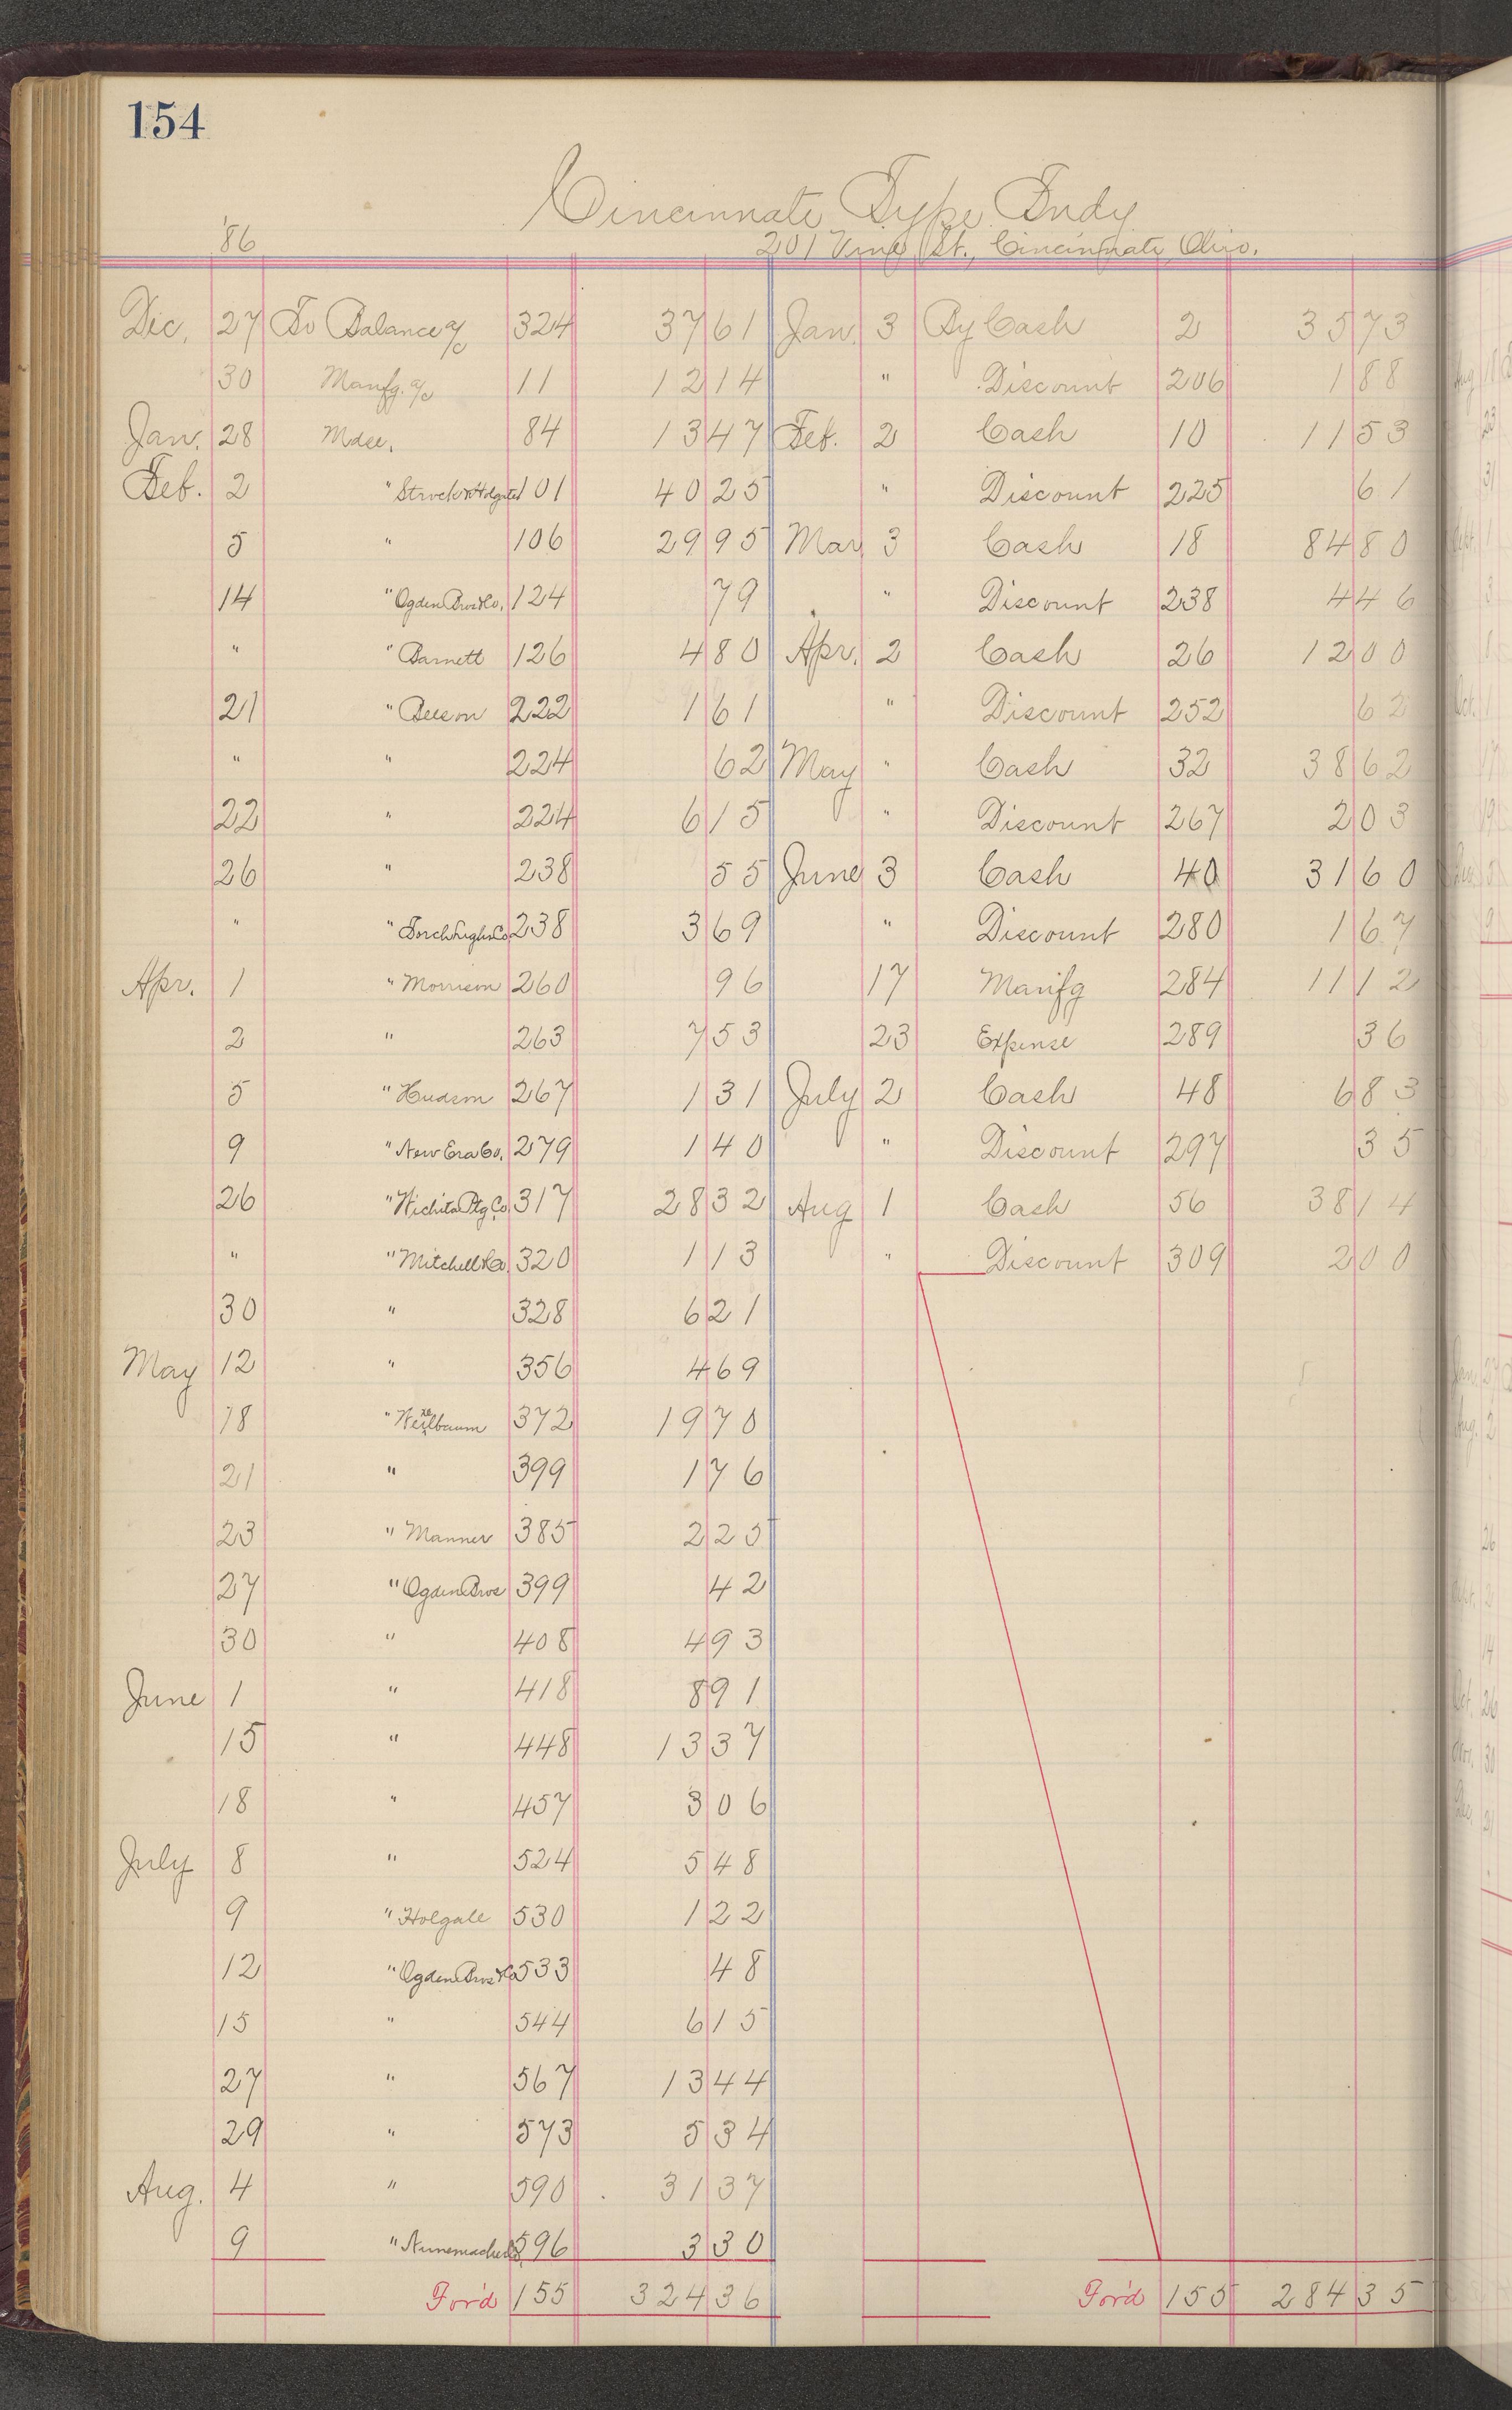 154
Cincinnati Type Fndy
'86
201 Vine St., Cincinnati, Ohio.
Dec. 27 To Balance a/c 324 37 61 Jan. 3 By Cash 2 35 73
30 Manfg. a/c 11 12 14 " Discount 206 1 88
Jan. 28 Mdse. 84 13 47 Feb. 2 Cash 10 11 53
Feb. 2 " 101 40 25 " Discount 225 61
5 " 106 29 95 Mar 3 Cash 18 84 80
14 " Ogden Bros & Co. 124 79 " Discount 238 4 46
" " Barnett 126 4 80 Apr. 2 Cash 26 12 00
21 " Beeson 222 1 61 " Discount 252 62
" " 224 62 May " Cash 32 38 62
22 " 224 6 15 " Discount 267 2 03
26 " 238 55 June 3 Cash 40 31 60
" " Torch Light Co 238 3 69 " Discount 280 1 67
Apr. 1 " Morrison 260 96 17 Manfg 284 11 12
2 " 263 7 53 23 Expense 289 36
5 " Hudson 267 1 31 July 2 Cash 48 6 83
9 " New Era Co. 279 1 40 " Discount 297 35
26 " Wichita Ptg Co 317 28 32 Aug 1 Cash 56 38 14
" " Mitchell & Co. 320 1 13 " Discount 309 2 00
30 " 328 6 21
May 12 " 356 4 69
18 " 372 19 70
21 " 399 1 76
23 " Manner 385 2 25
27 " Ogden Bros 399 42
30 " 408 4 93
June 1 " 418 8 91
15 " 448 13 37
18 " 457 3 06
July 8 " 524 5 48
9 " Holgate 530 1 22
12 " Ogden Bros & Co 533 48
15 " 544 6 15
27 " 567 13 44
29 " 573 5 34
Aug. 4 " 590 31 37
9 " 596 3 30
For'd 155 324 36 For'd 155 284 35